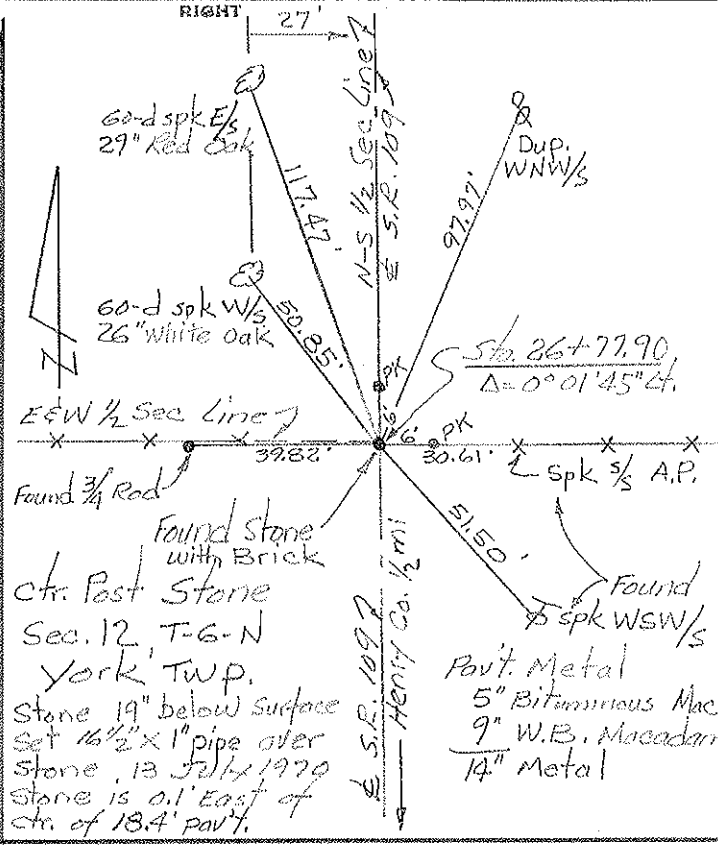 RIGHT
27'
60-d spk E/s
29" Red Oak
117.47'
N-S 1/2 Sec Line
℄ S.R. 109
97.97'
Dup.
WNW/s
60-d spk W/s
26" White Oak
50.85'
N
Sta. 26+77.90
Δ=0°01'45" Lt.
E&W 1/2 Sec Line
PK
6'
6'
PK
39.82'
30.61'
Spk s/s A.P.
Found 3/4 Rod
Found Stone
with Brick
51.50'
Found
spk WSW/s
Ctr. Post Stone
Sec. 12, T-6-N
York Twp.
Stone 19" below surface
Set 16 1/2" x 1" pipe over
Stone, 13 July 1970
Stone is 0.1' East of
ctr. of 18.4' pav't.
℄ S.R. 109
Henry Co. 1/2 mi
Pav't. Metal
5" Bituminous Mac
9" W.B. Macadam
14" Metal